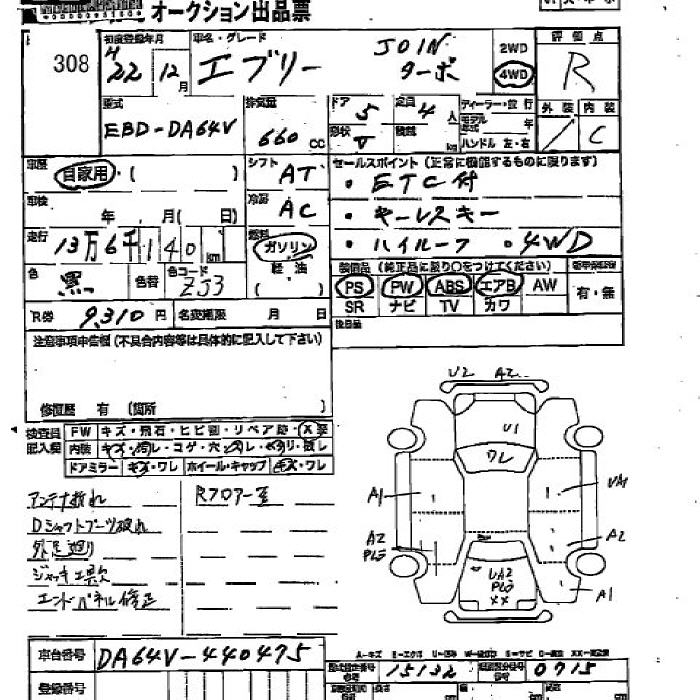 オークション出品票
308
初度登録年月
車名・グレード
H22年12月
エブリー
JOIN
ターボ
2WD
4WD
評価点
R
型式
EBD-DA64V
排気量
660 cc
ドア 5
定員 4人
形状 V
ディーラー・並行
モデル年式 年
ハンドル 左・右
外装
内装 C
車歴
自家用・( )
シフト AT
セールスポイント(正常に機能するものに限ります)
・ETC付
・キーレスキー
・ハイルーフ ・4WD
車検 年 月( 日)
冷房 AC
走行 13万6千140 km
燃料 ガソリン
軽油
( )
色 黒
色替
色コード ZJ3
装備品 (純正品に限り○をつけてください)
PS PW ABS エアB AW
SR ナビ TV カワ
有・無
R券 9,310円
名変期限 月 日
後日品
注意事項申告欄(不具合内容等は具体的に記入して下さい)
修復歴 有 (箇所 )
検査員記入欄
FW キズ・飛石・ヒビ割・リペア跡・X要
内装
ドアミラー キズ・ワレ ホイール・キャップ キズ・ワレ
アンテナ折れ
Rフロアー歪
Dシャフトブーツ破れ
外足廻り
ジャッキ工具欠
エンドパネル修正
U2 A2
U1
ワレ
A1
A2
A2
A1
UA2
XX
車台番号 DA64V-440475
登録番号
15132
0715